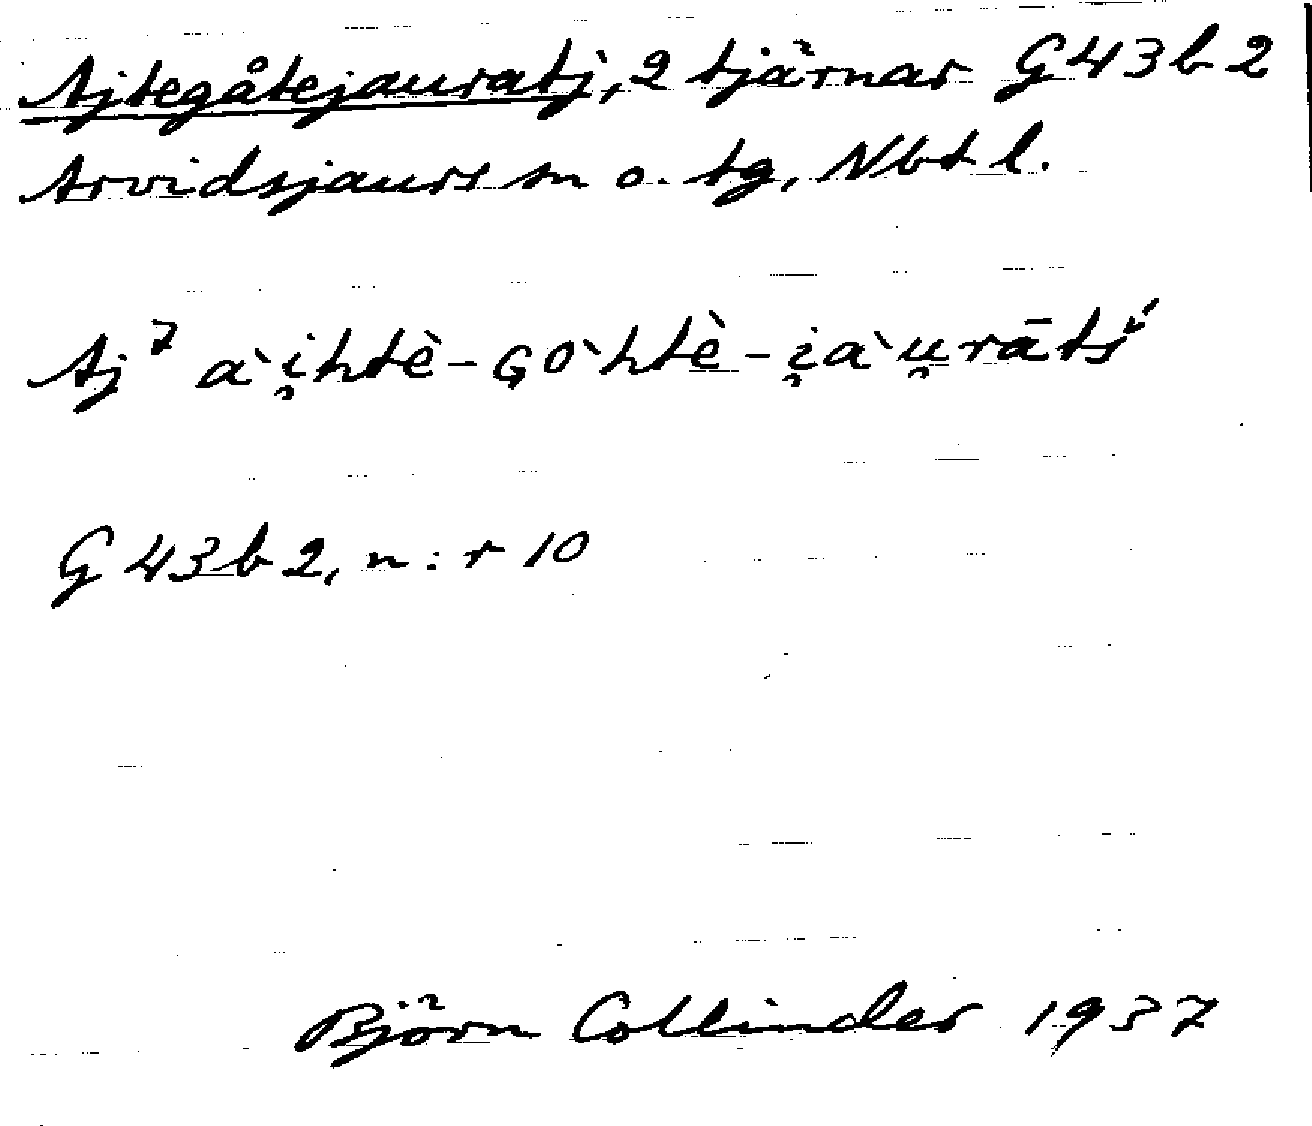 Ajtegåtejauratj, 2 tjärnar G 43 b 2
Arvidsjaurs sn o. tg, Nbt l.
Aj⁷ a`i̯htè-GO`htè-i̯a`u̯rātś
G 43 b 2, n:r 10
Björn Collinder 1937